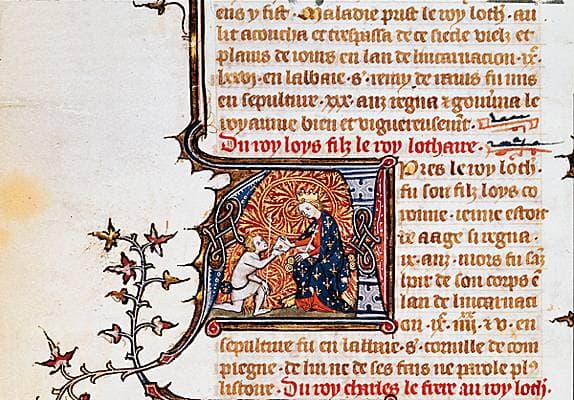 ens y fist. Maladie prist le roy loth. au
lit acoucha et trespassa de ce siecle vielz et
plains de iours en lan de lincarnacion .ixᶜ.
lxxvj. en labaie .s. remy de rains fu mis
en sepulture .xxx. anz regna & gouuerna le
royaume bien et viguereusemēt.
Du roy loys filz le roy lothaire.
APres le roy loth.
fu son filz loys co
ronne. ienne estoit
de aage si regna.
ix. anz. mors fu saz
hoir de son corps ē
lan de lincarnaci
on .ixᶜ. iiijˣˣ & v. en
sepulture fu en labbaie .s. cornille de com
piegne. de lui ne de ses fais ne parole plꝰ
listoire. Du roy charles le frere au roy loth.